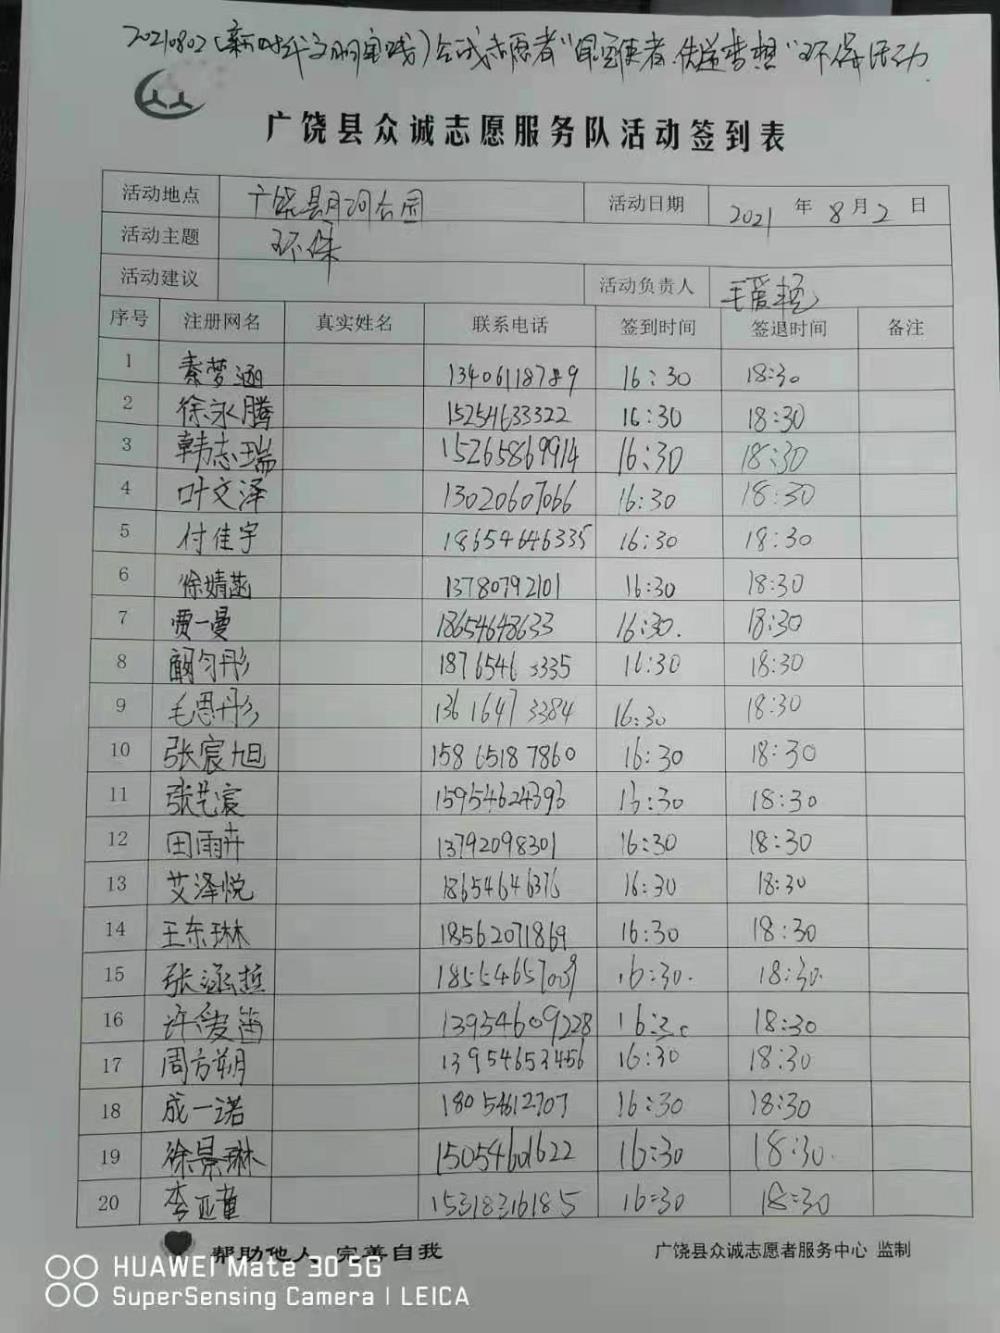 20210802(新时代文明实践)众诚志愿者"
使者 传递梦想"环保活动
广饶县众诚志愿服务队活动签到表
活动地点 广饶县月河公园 活动日期 2021年8月2日
活动主题 环保
活动建议 活动负责人 毛爱艳
序号 注册网名 真实姓名 联系电话 签到时间 签退时间 备注
1 秦梦涵 13406118789 16:30 18:30
2 徐永腾 15254633322 16:30 18:30
3 韩志瑞 15265869914 16:30 18:30
4 叶文泽 13020607066 16:30 18:30
5 付佳宇 18654646335 16:30 18:30
6 徐婧菡 13780792101 16:30 18:30
7 贾一曼 18654648633 16:30. 18:30
8 匀彤 1876546 3335 16:30 18:30
9 毛思彤 1361647 3384 16:30 18:30
10 张宸旭 158 65187860 16:30 18:30
11 张艺宸 15954624393 16:30 18:30
12 田雨卉 13792098301 16:30 18:30
13 艾泽悦 18654646376 16:30 18:30
14 王东琳 18562071869 16:30 18:30
15 张涵哲 16:30. 18:30.
16 许爱笛 13954609228 16:30 18:30
17 周方朔 13954653456 16:30 18:30
18 成一诺 18054612707 16:30 18:30
19 徐景琳 15054601622 16:30 18:30.
20 李亚萱 15318316185 16:30 18:30
帮助他人 完善自我 广饶县众诚志愿者服务中心 监制
HUAWEI Mate 30 5G
SuperSensing Camera | LEICA